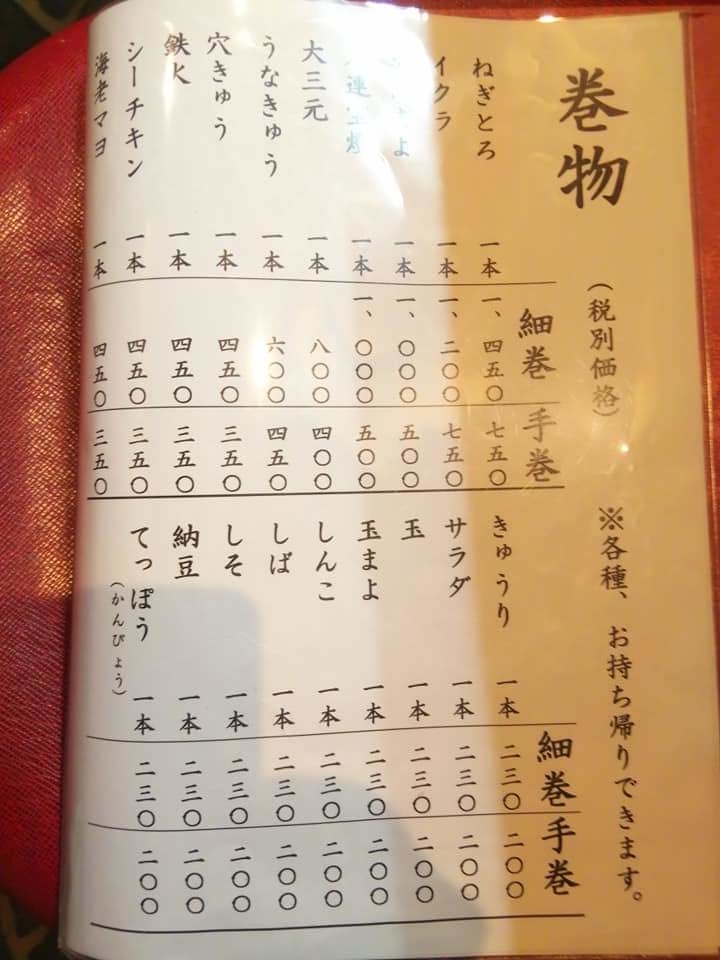 巻物
（税別価格）
※各種、お持ち帰りできます。
細巻 手巻
ねぎとろ 一本 一、四五〇 七五〇
イクラ 一本 一、二〇〇 七五〇
一本 一、〇〇〇 五〇〇
一本 一、〇〇〇 五〇〇
大三元 一本 八〇〇 四〇〇
うなきゅう 一本 六〇〇 四五〇
穴きゅう 一本 四五〇 三五〇
鉄火 一本 四五〇 三五〇
シーチキン 一本 四五〇 三五〇
海老マヨ 一本 四五〇 三五〇
細巻 手巻
きゅうり 一本 二三〇 二〇〇
サラダ 一本 二三〇 二〇〇
玉 一本 二三〇 二〇〇
玉まよ 一本 二三〇 二〇〇
しんこ 一本 二三〇 二〇〇
しば 一本 二三〇 二〇〇
しそ 一本 二三〇 二〇〇
納豆 一本 二三〇 二〇〇
てっぽう 一本 二三〇 二〇〇
（かんぴょう）